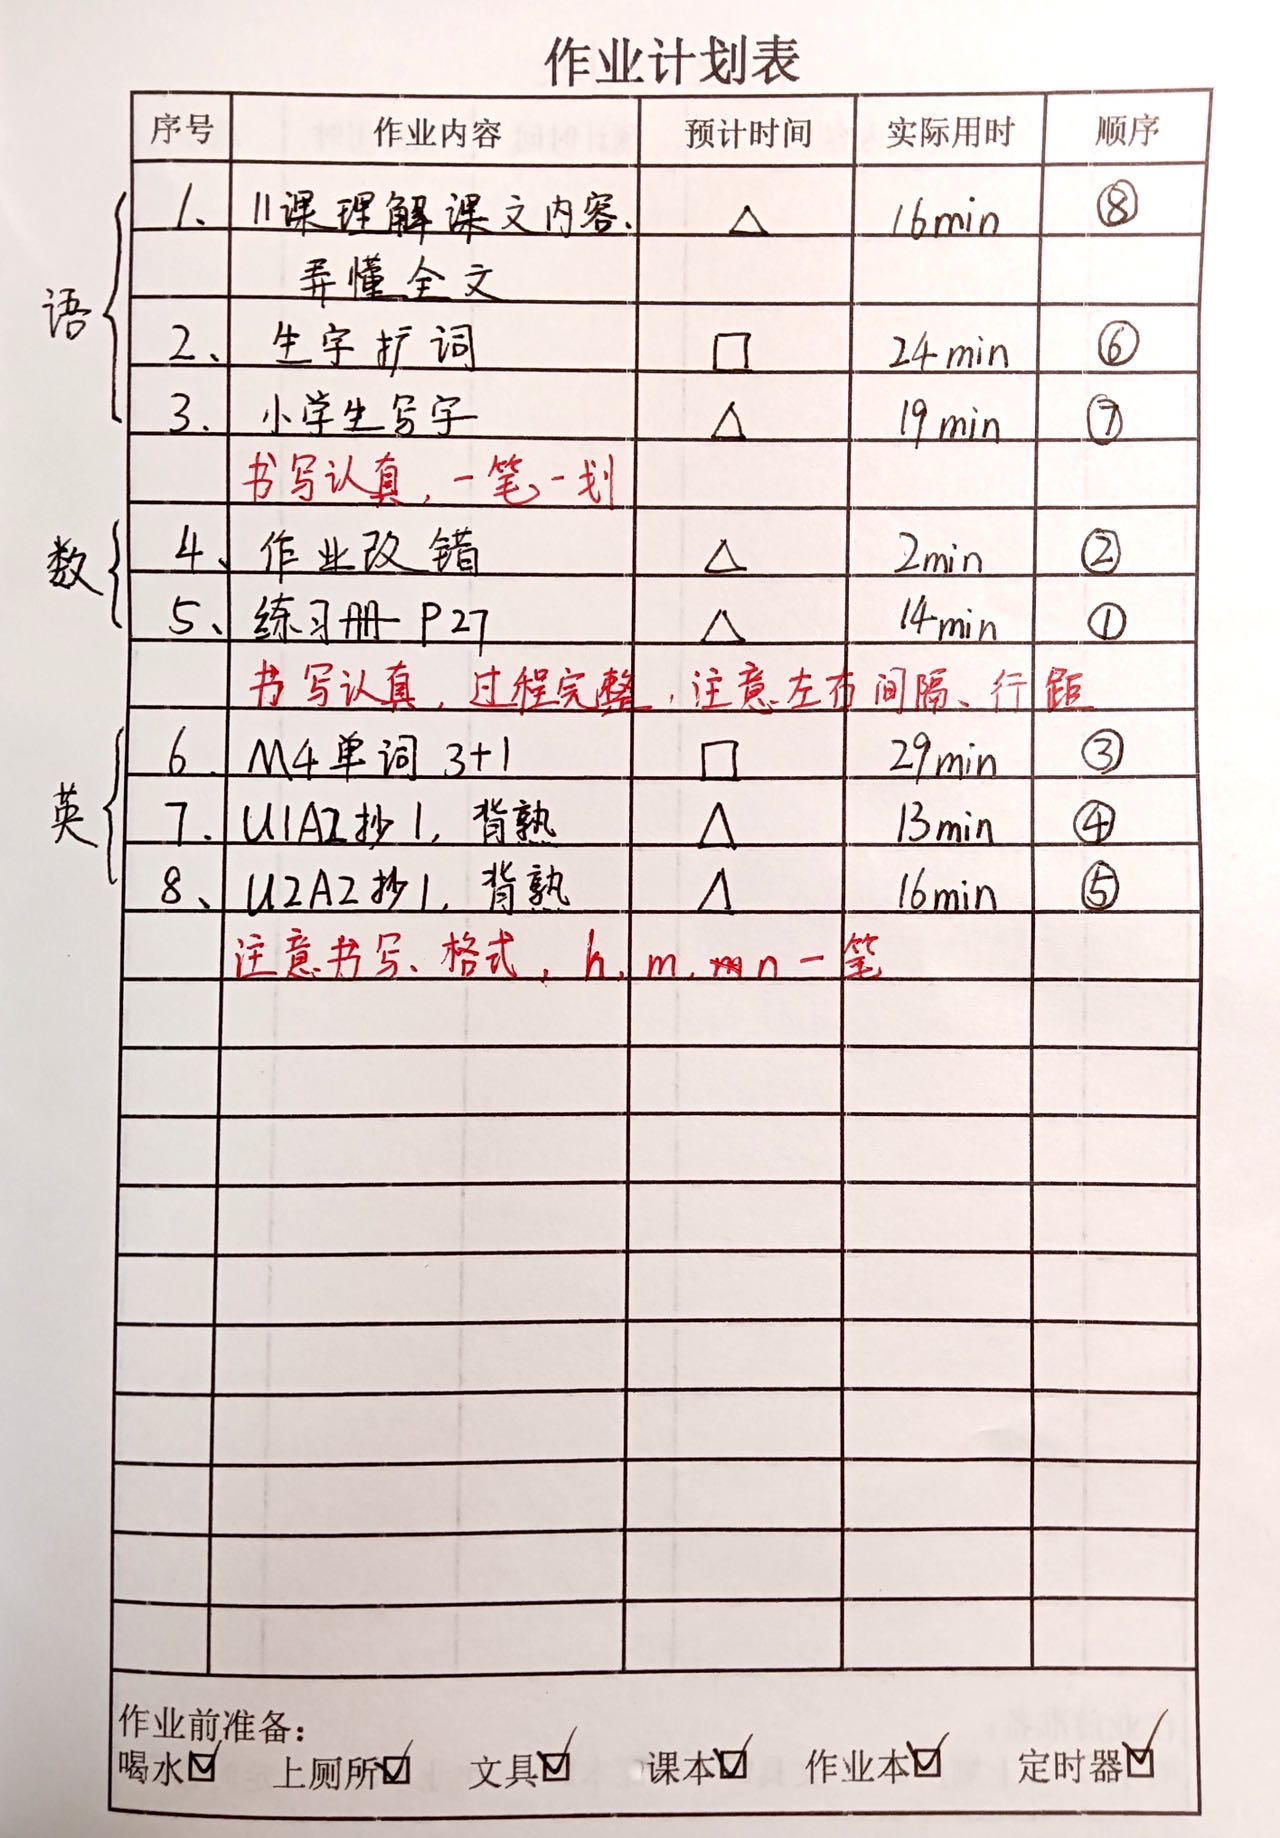 作业计划表
序号 作业内容 预计时间 实际用时 顺序
语
1、 11课理解课文内容、 △ 16min ⑧
弄懂全文
2、 生字扩词 □ 24min ⑥
3、 小学生写字 △ 19min ⑦
书写认真，一笔一划
数
4、 作业改错 △ 2min ②
5、 练习册P27 △ 14min ①
书写认真，过程完整，注意左右间隔、行距
英
6. M4单词 3+1 □ 29min ③
7. U1A2抄1，背熟 △ 13min ④
8、 U2A2抄1，背熟 △ 16min ⑤
注意书写、格式，h、m、n一笔
作业前准备：
喝水☑ 上厕所☑ 文具☑ 课本☑ 作业本☑ 定时器☑